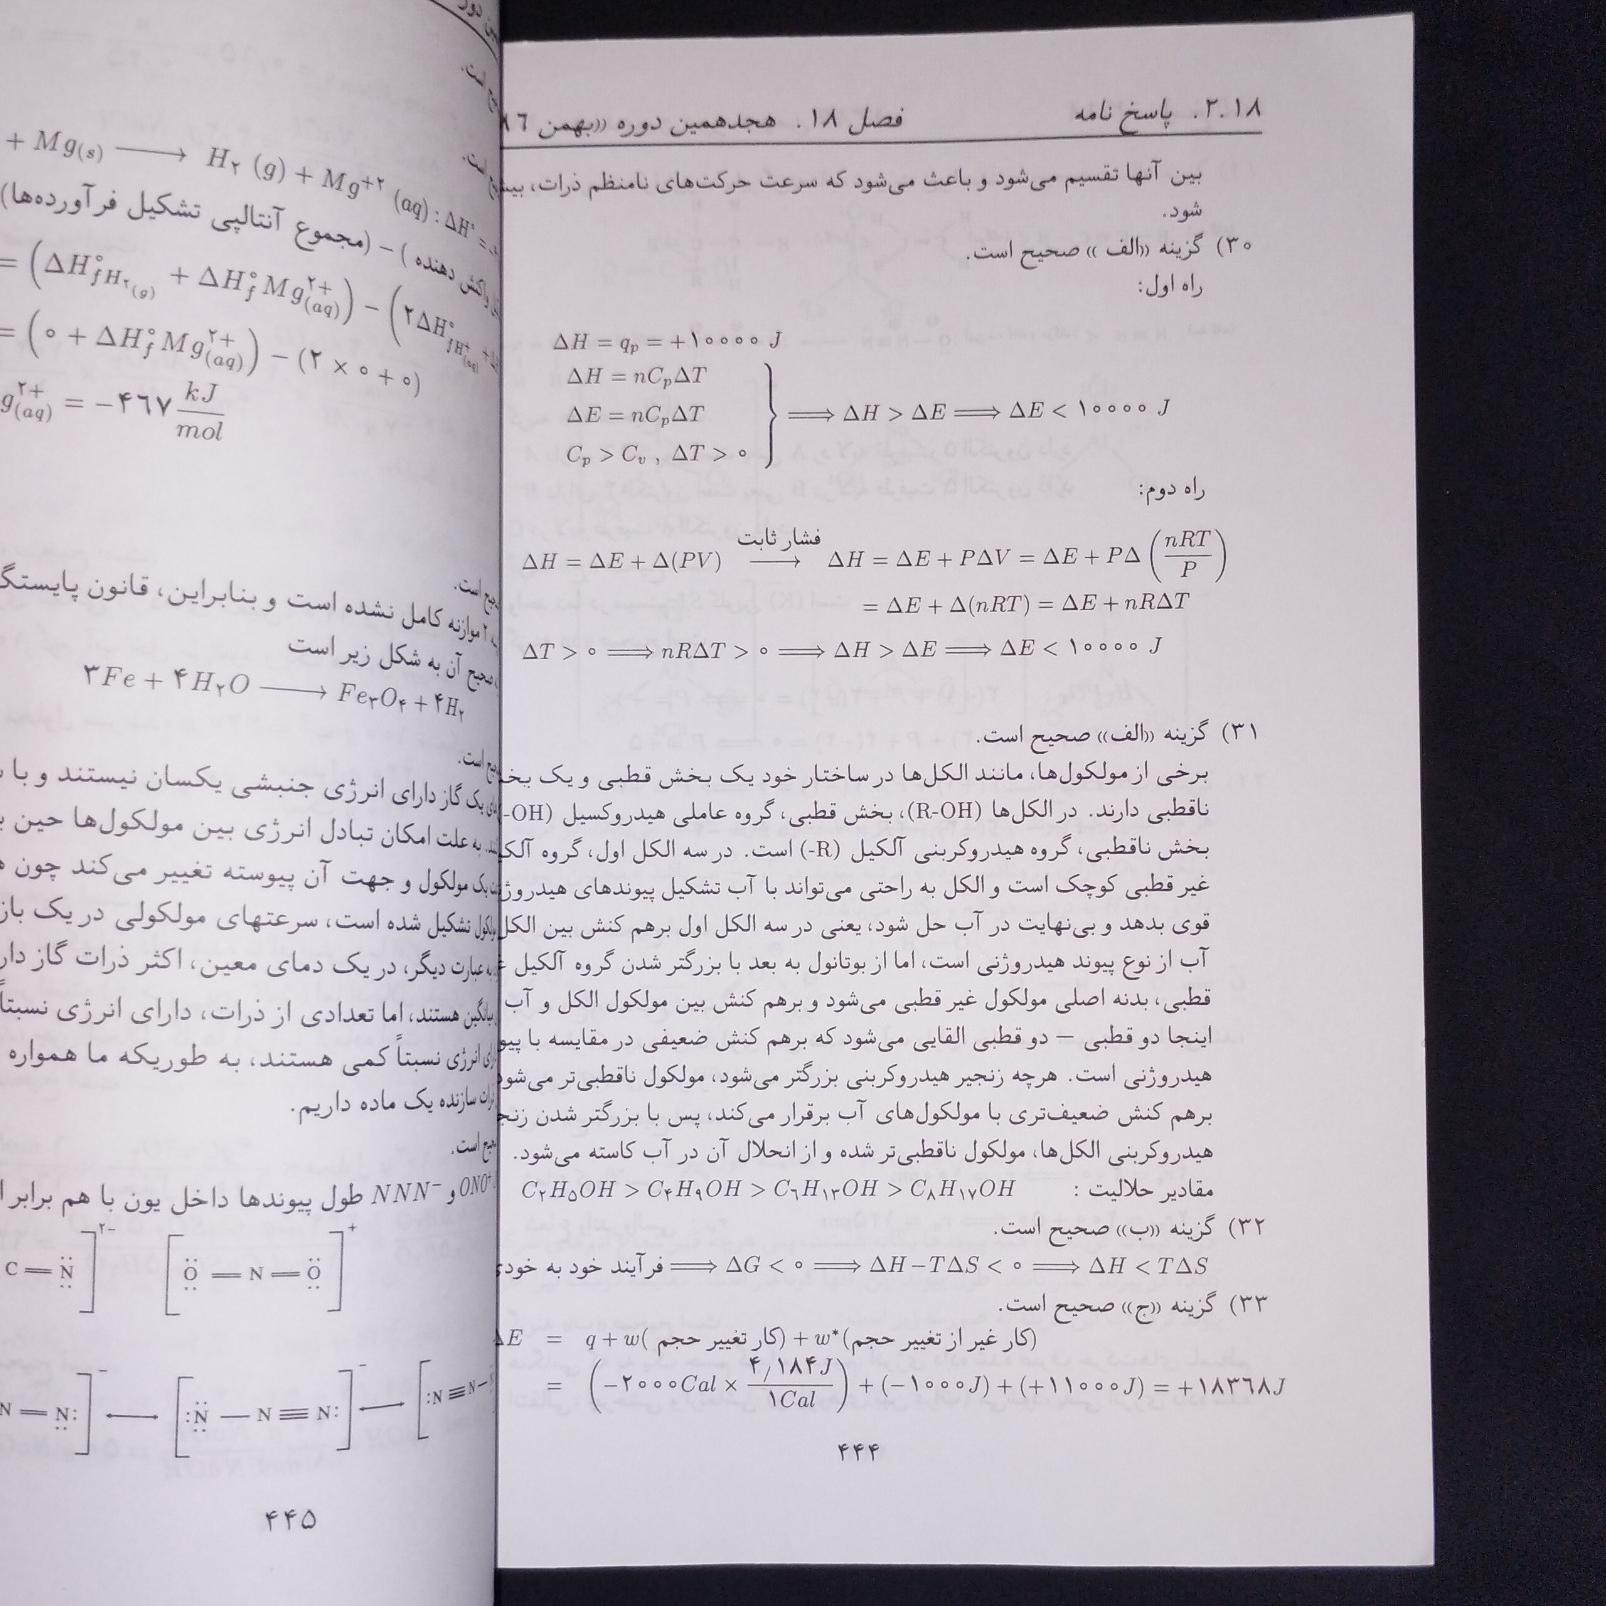 ۲.۱۸. پاسخ نامه
فصل ۱۸. هجدهمین دوره ((بهمن ۸۶
بین آنها تقسیم می‌شود و باعث می‌شود که سرعت حرکت‌های نامنظم ذرات،
شود.
۳۰) گزینه ((الف )) صحیح است.
راه اول:
ΔH = qₚ = +۱۰۰۰۰ J
ΔH = nCₚΔT
ΔE = nCₚΔT
Cₚ > Cᵥ , ΔT > ۰
⟹ ΔH > ΔE ⟹ ΔE < ۱۰۰۰۰ J
راه دوم:
ΔH = ΔE + Δ(PV) فشار ثابت ⟶ ΔH = ΔE + PΔV = ΔE + PΔ(nRT/P)
= ΔE + Δ(nRT) = ΔE + nRΔT
ΔT > ۰ ⟹ nRΔT > ۰ ⟹ ΔH > ΔE ⟹ ΔE < ۱۰۰۰۰ J
۳۱) گزینه ((الف)) صحیح است.
برخی از مولکول‌ها، مانند الکل‌ها در ساختار خود یک بخش قطبی و یک
ناقطبی دارند. در الکل‌ها (R-OH)، بخش قطبی، گروه عاملی هیدروکسیل (-OH)
بخش ناقطبی، گروه هیدروکربنی آلکیل (R-) است. در سه الکل اول، گروه
غیر قطبی کوچک است و الکل به راحتی می‌تواند با آب تشکیل پیوندهای
قوی بدهد و بی‌نهایت در آب حل شود، یعنی در سه الکل اول برهم کنش بین الکل
آب از نوع پیوند هیدروژنی است، اما از بوتانول به بعد با بزرگتر شدن گروه آلکیل
قطبی، بدنه اصلی مولکول غیر قطبی می‌شود و برهم کنش بین مولکول الکل و آب
اینجا دو قطبی – دو قطبی القایی می‌شود که برهم کنش ضعیفی در مقایسه با
هیدروژنی است. هرچه زنجیر هیدروکربنی بزرگتر می‌شود، مولکول ناقطبی‌تر می‌شود
برهم کنش ضعیف‌تری با مولکول‌های آب برقرار می‌کند، پس با بزرگتر شدن
هیدروکربنی الکل‌ها، مولکول ناقطبی‌تر شده و از انحلال آن در آب کاسته می‌شود.
مقادیر حلالیت : C₂H₅OH > C₄H₉OH > C₆H₁₃OH > C₈H₁₇OH
۳۲) گزینه ((ب)) صحیح است.
فرآیند خود به خودی ⟹ ΔG < ۰ ⟹ ΔH−TΔS < ۰ ⟹ ΔH < TΔS
۳۳) گزینه ((ج)) صحیح است.
ΔE = q + w( کار تغییر حجم) + w*(کار غیر از تغییر حجم)
= (−۲۰۰۰Cal × ۴/۱۸۴J/۱Cal) + (−۱۰۰۰J) + (+۱۱۰۰۰J) = +۱۸۳۶۸J
۴۴۴
+ Mg(s) ⟶ H₂ (g) + Mg⁺² (aq) : ΔH° =
(مجموع آنتالپی تشکیل فرآورده‌ها) − ( واکنش دهنده
= (ΔH°f H₂(g) + ΔH°f Mg²⁺(aq)) − (۲ΔH°f H⁺(aq) +
= (۰ + ΔH°f Mg²⁺(aq)) − (۲ × ۰ + ۰)
g²⁺(aq) = −۴۶۷ kJ/mol
است.
۲ موازنه کامل نشده است و بنابراین، قانون
صحیح آن به شکل زیر است
۳Fe + ۴H₂O ⟶ Fe₃O₄ + ۴H₂
است.
یک گاز دارای انرژی جنبشی یکسان نیستند و با
به علت امکان تبادل انرژی بین مولکول‌ها حین
یک مولکول و جهت آن پیوسته تغییر می‌کند چون
تشکیل شده است، سرعتهای مولکولی در یک
به عبارت دیگر، در یک دمای معین، اکثر ذرات گاز
میانگین هستند، اما تعدادی از ذرات، دارای انرژی نسبتاً
انرژی نسبتاً کمی هستند، به طوریکه ما همواره
ذرات سازنده یک ماده داریم.
است.
ONO⁺ و NNN⁻ طول پیوندها داخل یون با هم برابر
C = N̈]²⁻ [Ö = N = Ö]⁺
N = N:]⁻ ⟷ [:N̈ — N ≡ N:]⁻ ⟷ [:N ≡ N —
۴۴۵